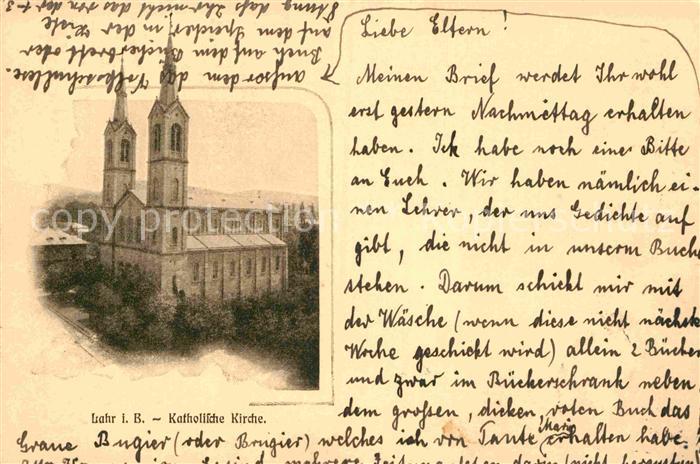 Liebe Eltern!
Meinen Brief werdet Ihr wohl
erst gestern Nachmittag erhalten
haben. Ich habe noch eine Bitte
an Euch. Wir haben nämlich ei-
nen Lehrer, der uns Gedichte auf
gibt, die nicht in unserm Buch
stehen. Darum schickt mir mit
der Wäsche (wenn diese nicht nächste
Woche geschickt wird) allein 2 Bücher
und zwar im Bückerschrank neben
dem grossen, dicken, roten Buch das
Graue Bugier (oder Brugier) welches ich von Tante Marie erhalten habe!
ausserdem das Volksschullese-
Buch auf dem Bücherbrett oder
auf dem Speicher in der Kiste
dass Ihr nicht das von der
Lahr i. B. – Katholische Kirche.
copyright